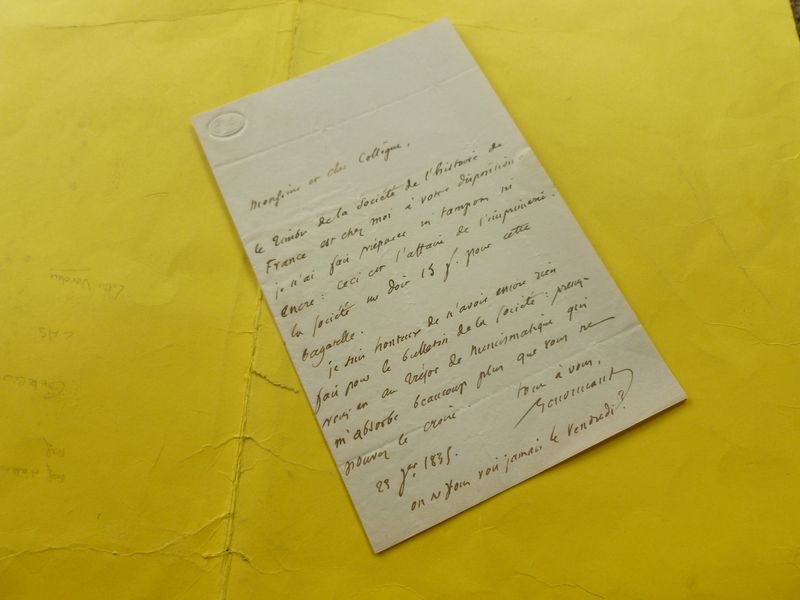 Monsieur et cher Collègue,
le timbre de la Société de l'histoire de
France est chez moi à votre disposition
je n'ai fait préparer ni tampon ni
encre: ceci est l'affaire de l'imprimerie.
la société me doit 15 f. pour cette
bagatelle.
je suis honteux de n'avoir encore rien
fait pour le bulletin de la Société.
au trésor de numismatique qui
m'absorbe beaucoup plus que vous ne
pouvez le croire. tout à vous,
23 1835.
on ne vous voit jamais le vendredi?